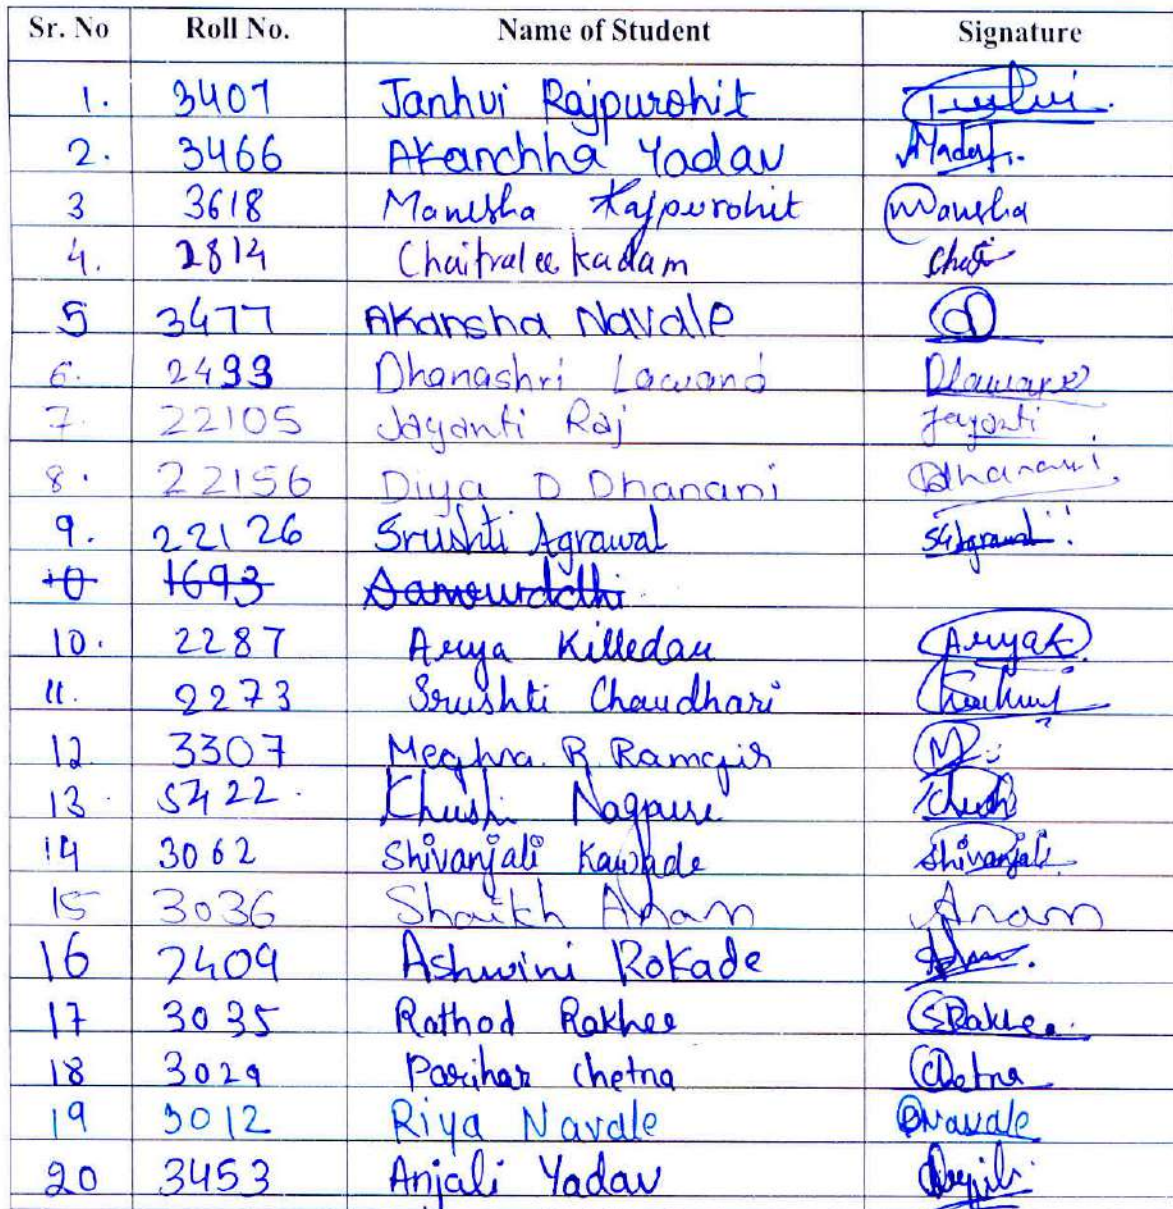 Sr. No Roll No. Name of Student Signature
1. 3407 Janhvi Rajpurohit
2. 3466 Akanchha Yadav
3 3618 Manisha Rajpurohit Manisha
4. 2814 Chaitralee Kadam
5 3477 Akansha Navale
6. 2499 Dhanashri Lawand
7. 22105 Jayanti Raj Jayanti
8. 22156 Diya D Dhanani Dhanani
9. 22126 Srushti Agrawal
10 1693
10. 2287 Arya Killedar AryaK
11. 2273 Srushti Chaudhari
12 3307 Meghna. R. Ramgir
13. 5422. Khushi Nagpure
14 3062 Shivanjali Kawade Shivanjali
15 3036 Shaikh Anam Anam
16 2409 Ashwini Rokade
17 3035 Rathod Rakhee
18 3029 Parihar Chetna Chetna
19 3012 Riya Navale RNavale
20 3453 Anjali Yadav